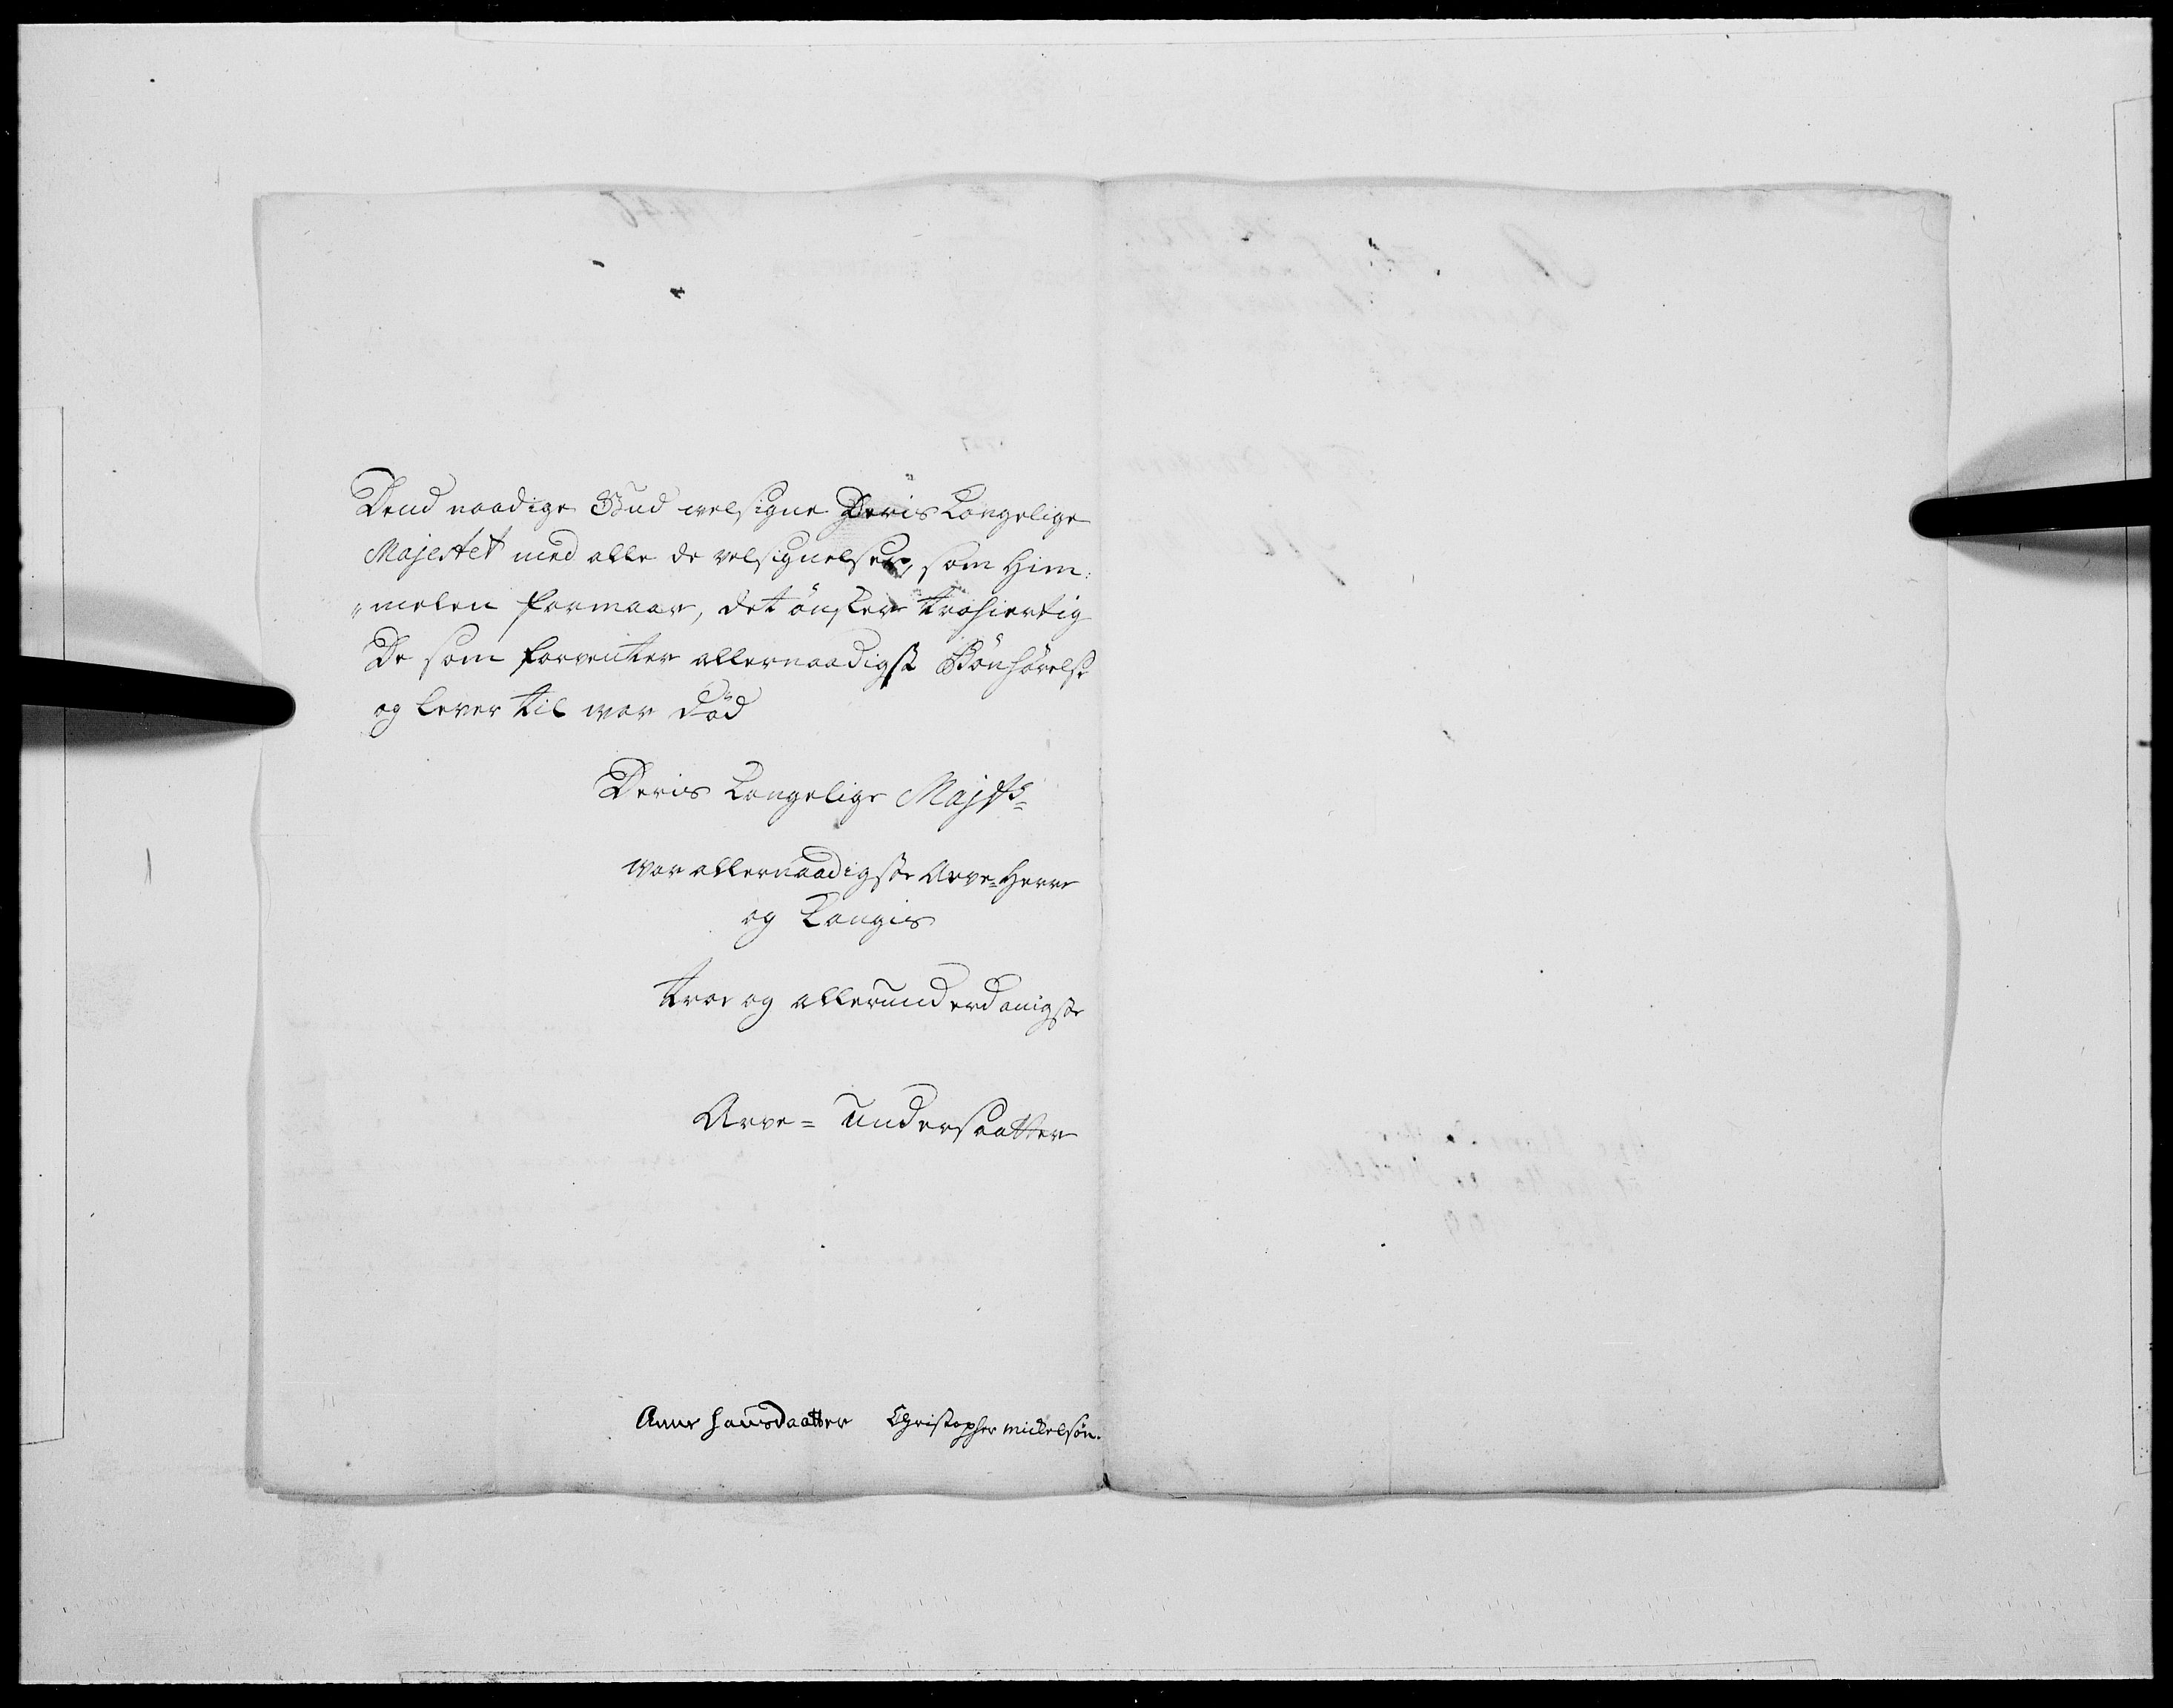 Dend naadige Gud velsigne Deris Kongelige
Majestet med alle de velsignelser, som Him:
„melen formaar, det önsker trohiertig
De som forventer allernaadigst Bönhörelse
og lever til vor död
Deris Kongelige Majsts=
vor allernaadigste Arve=Herre
og Kongis
troe og allerunderdanigste
Arve= Undersaatter
Anne hansdaatter Christopher mickelsön.